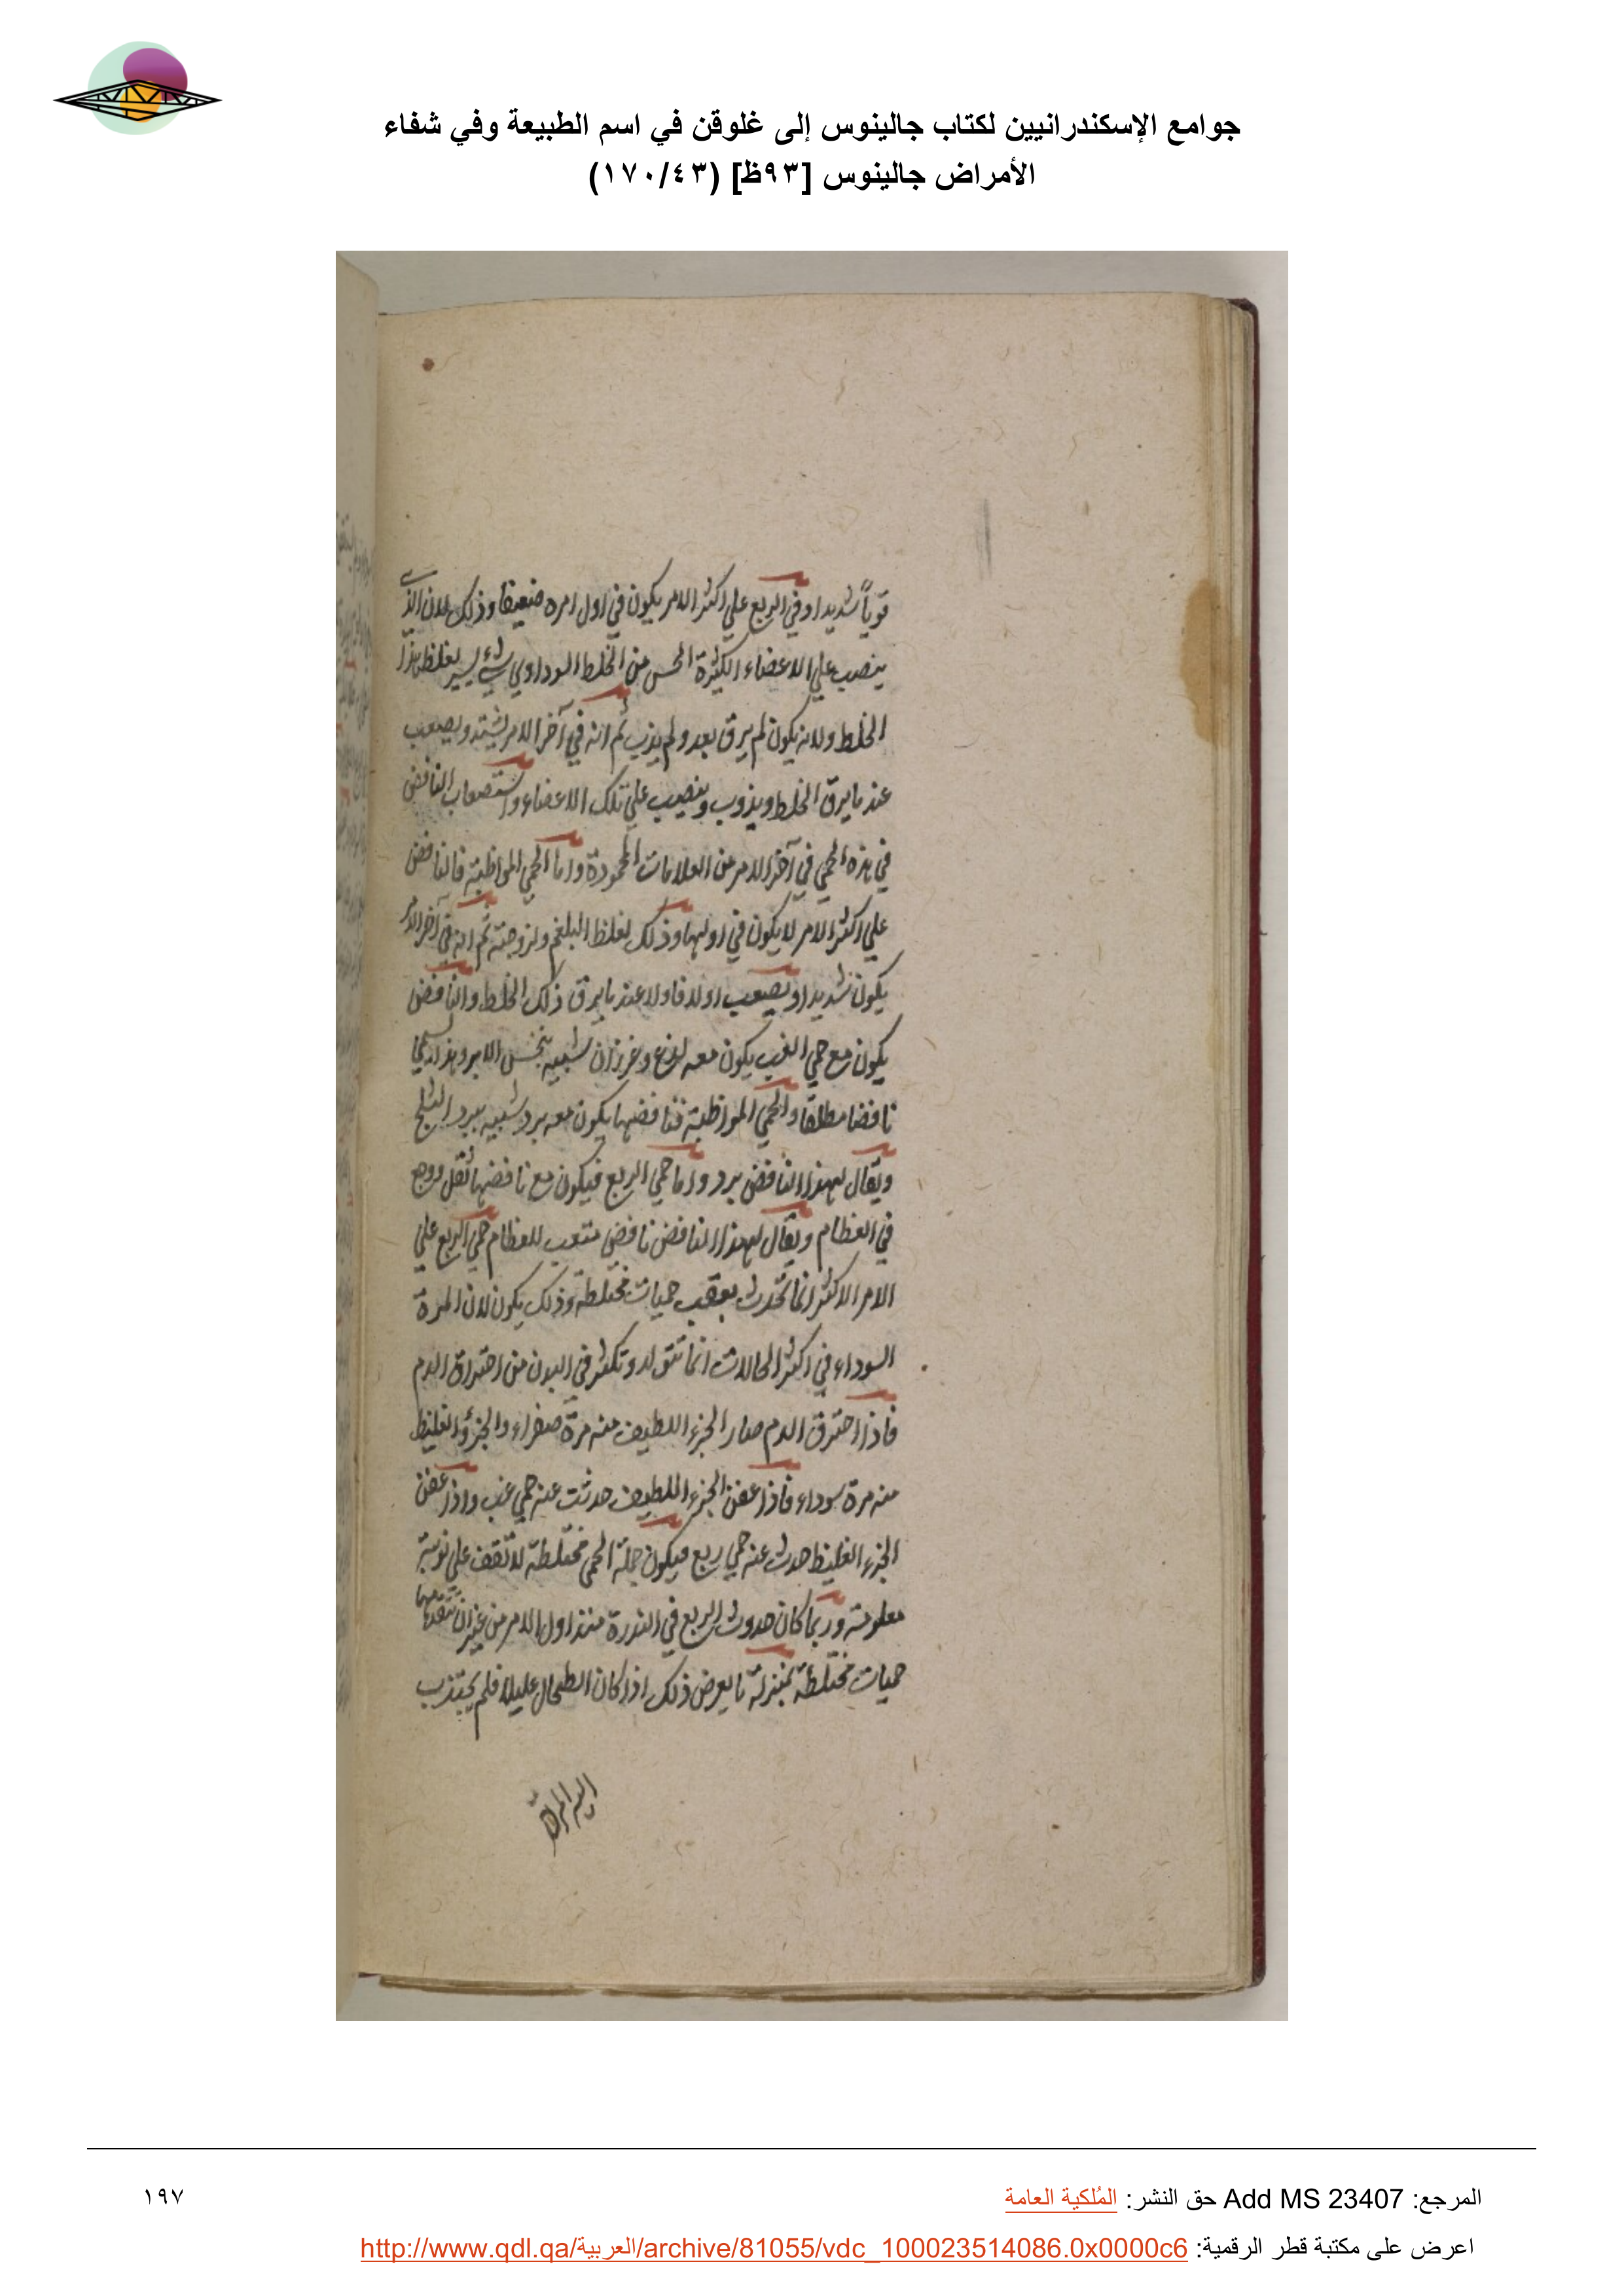 جوامع الإسكندرانيين لكتاب جالينوس إلى غلوقن في اسم الطبيعة وفي شفاء
الأمراض جالينوس [٩٣ظ] (١٧٠/٤٣)
قوياً شديدا وفي الربع علي اكثر الامر يكون في اول امره ضعيفا وذلك لان الذي
ينصب علي الاعضاء الكثيرة الحس من الخلط السوداوي شيء يسير لغلظ هذا
الخلط ولانه يكون لم يرق بعد ولم يذب ثم انه في آخر الامر يشتد ويصعب
عند ما يرق الخلط ويذوب وينصب علي تلك الاعضاء واستصعاب النافض
في هذه الحمي في آخر الامر من العلامات المحمودة واما الحمي المواظبة فالنافض
علي اكثر الامر لا يكون في اولها وذلك لغلظ البلغم ولزوجته ثم انه في آخر الامر
يكون شديدا ويصعب اولا فاولا عند ما يرق ذلك الخلط والنافض
يكون مع حمي الغب يكون معه لذع وغرزان شبيه بنخس الابر وهذا يسمي
نافضا مطلقا والحمي المواظبة فنافضها يكون معه برد شبيه ببرد الثلج
ويقال لهذا النافض برد واما حمي الربع فيكون مع نافضها ثقل ووجع
في العظام ويقال لهذا النافض نافض متعب للعظام حمي الربع علي
الامر الاكثر انما تحدث بعقب حميات مختلطة وذلك يكون لان المرة
السوداء في اكثر الحالات انما تتولد وتكثر في البدن من احتراق الدم
فاذا احترق الدم صار الجزء اللطيف منه مرة صفراء والجزؤ الغليظ
منه مرة سوداء فاذا عفن الجزء اللطيف حدثت عنه حمي غب واذا عفن
الجزء الغليظ حدث عنه حمي ربع فيكون جملة الحمي مختلطة لا تقف علي نوبة
معلومة وربما كان حدوث الربع في الندرة منذ اول الامر من غير ان تتقدمها
حميات مختلطة بمنزلة ما يعرض ذلك اذا كان الطحال عليلا فلم يجتذب
اليه المرة
المرجع: Add MS 23407 حق النشر: المُلكية العامة
١٩٧
اعرض على مكتبة قطر الرقمية: http://www.qdl.qa/العربية/archive/81055/vdc_100023514086.0x0000c6